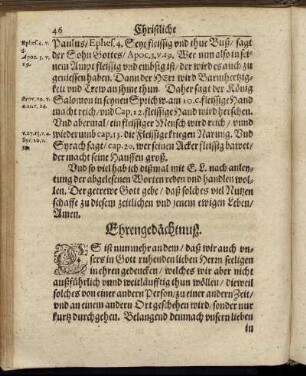 46
Christliche
Paulus/ Ephes. 4. Seyt fleissig vnd thue Buß/ sagt
der Sohn Gottes/ Apoc. 3. v. 19. Wer nun also in sei-
nem Ampt fleissig vnd embsig ist/ der wird es auch zu
geniessen haben. Dann der HErr wird Barmhertzig-
keit vnd Trew an jhme thun. Daher sagt der König
Salomon in seynen Sprichw. am 10. c. fleissige Hand
macht reich/ vnd Cap. 12. fleissige Hand wird herschen.
Vnd abermal/ ein fleissiger Mensch wird reich/ vnnd
widerumb cap. 13. die Fleissige kriegen Narung. Vnd
Syrach sagt/ cap. 20. wer seinen Acker fleissig bawet/
der macht seine Hauffen groß.
Vnd so viel hab ich dißmal mit E. L. nach anley-
tung der abgelesenen Worten reden vnd handlen wol-
len. Der getrewe Gott gebe/ daß solches viel Nutzen
schaffe zu diesem zeitlichen vnd jenem ewigen Leben/
Amen.
Ehrengedächtnuß.
ES ist nun mehr an dem/ daß wir auch vn-
sers in Gott ruhenden lieben Herrn seeligen
in ehren gedencken/ welches wir aber nicht
außführlich vnnd weitläufftig thun wöllen/ dieweil
solches von einer andern Person/ zu einer andern Zeit/
vnd an einem andern Ort geschehen wird/ sonder nur
kurtz durchgehen. Belangend demnach vnsern lieben
in
Ephes. 4. v.
Apoc. 3. v.
19.